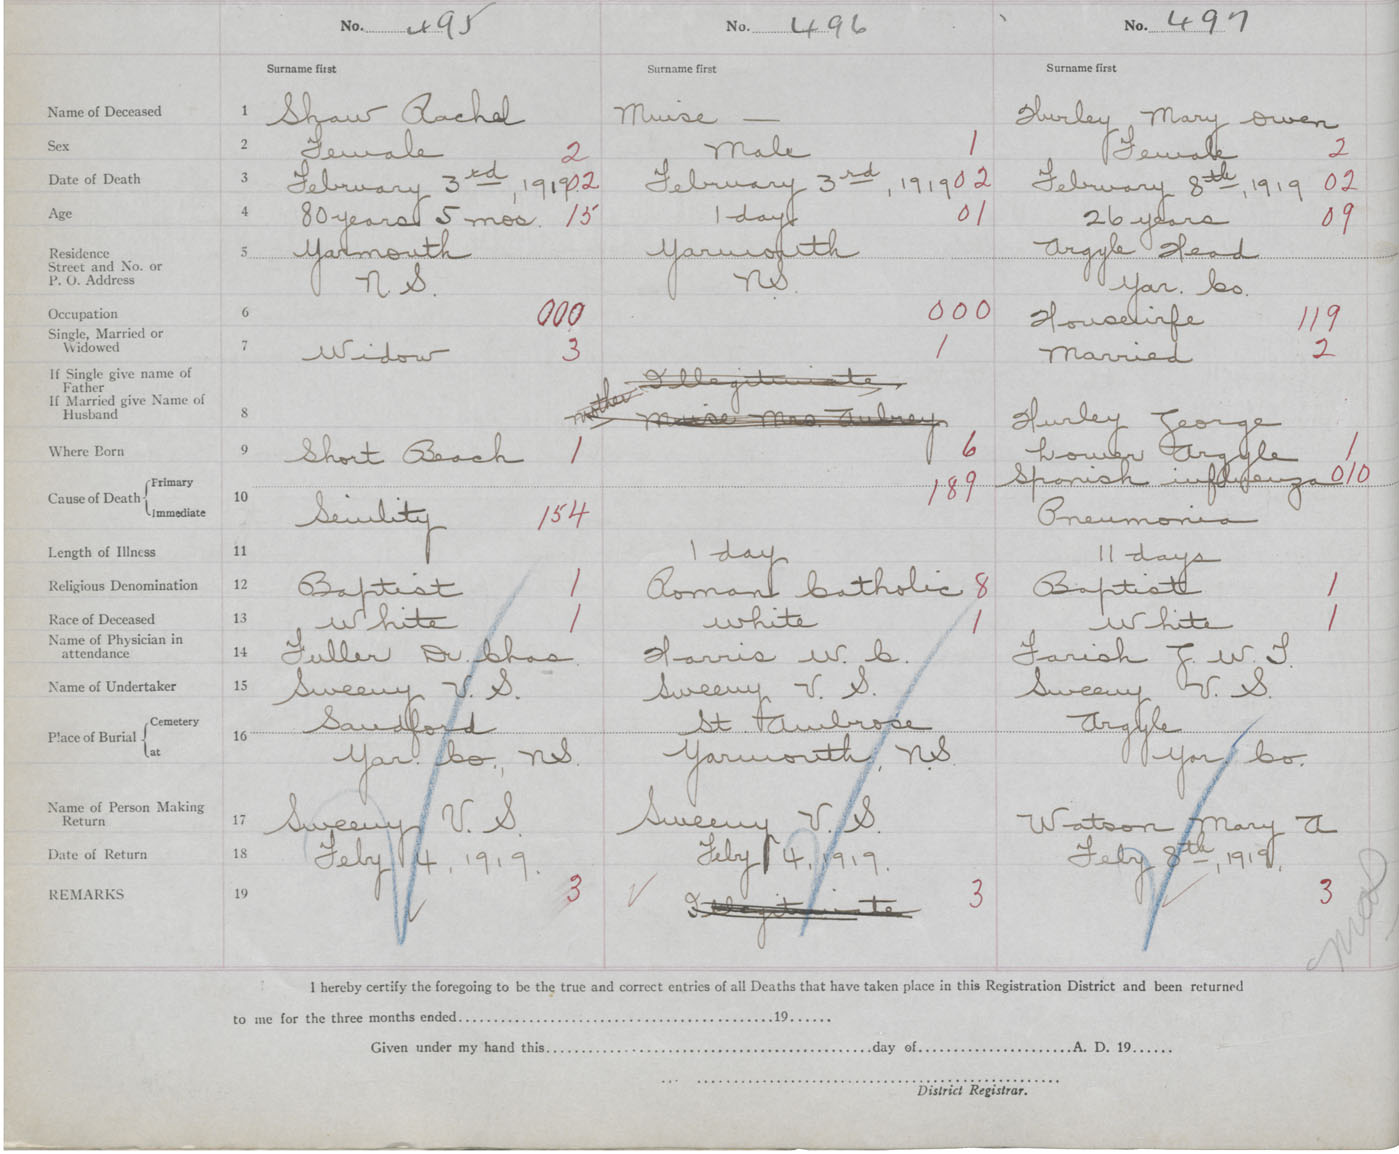 No. 495 No. 496 No. 497
Surname first Surname first Surname first
Name of Deceased 1 Shaw Rachel Muise — Hurley Mary Owen
Sex 2 Female 2 Male 1 Female 2
Date of Death 3 February 3rd, 1919 02 February 3rd, 1919 02 February 8th, 1919 02
Age 4 80 years 5 mos. 15 1 day 01 26 years 09
Residence 5 Yarmouth Yarmouth Argyle Head
Street and No. or
P. O. Address N. S. N.S. Yar. Co.
Occupation 6 000 000 Housewife 119
Single, Married or
Widowed 7 Widow 3 1 Married 2
If Single give name of
Father Illegitimate
If Married give Name of
Husband 8 mother Muise Mrs. Aubrey Hurley George
Where Born 9 Short Beach 1 6 Lower Argyle 1
Cause of Death Primary 189 Spanish influenza 010
Immediate 10 Senility 154 Pneumonia
Length of Illness 11 1 day 11 days
Religious Denomination 12 Baptist 1 Roman Catholic 8 Baptist 1
Race of Deceased 13 White 1 White 1 White 1
Name of Physician in
attendance 14 Fuller Dr. Chas. Harris W. C. Farish J. W. T.
Name of Undertaker 15 Sweeny V. S. Sweeny V. S. Sweeny V. S.
Place of Burial Cemetery 16 Sandford St. Ambrose Argyle
at Yar. Co., N.S. Yarmouth, N.S. Yar. Co.
Name of Person Making
Return 17 Sweeny V. S. Sweeny V. S. Watson Mary A
Date of Return 18 Feby 4, 1919. Feby 4, 1919. Feby 8th, 1919.
REMARKS 19 3 Illegitimate 3 3
I hereby certify the foregoing to be the true and correct entries of all Deaths that have taken place in this Registration District and been returned
to me for the three months ended 19
Given under my hand this day of A. D. 19
District Registrar.